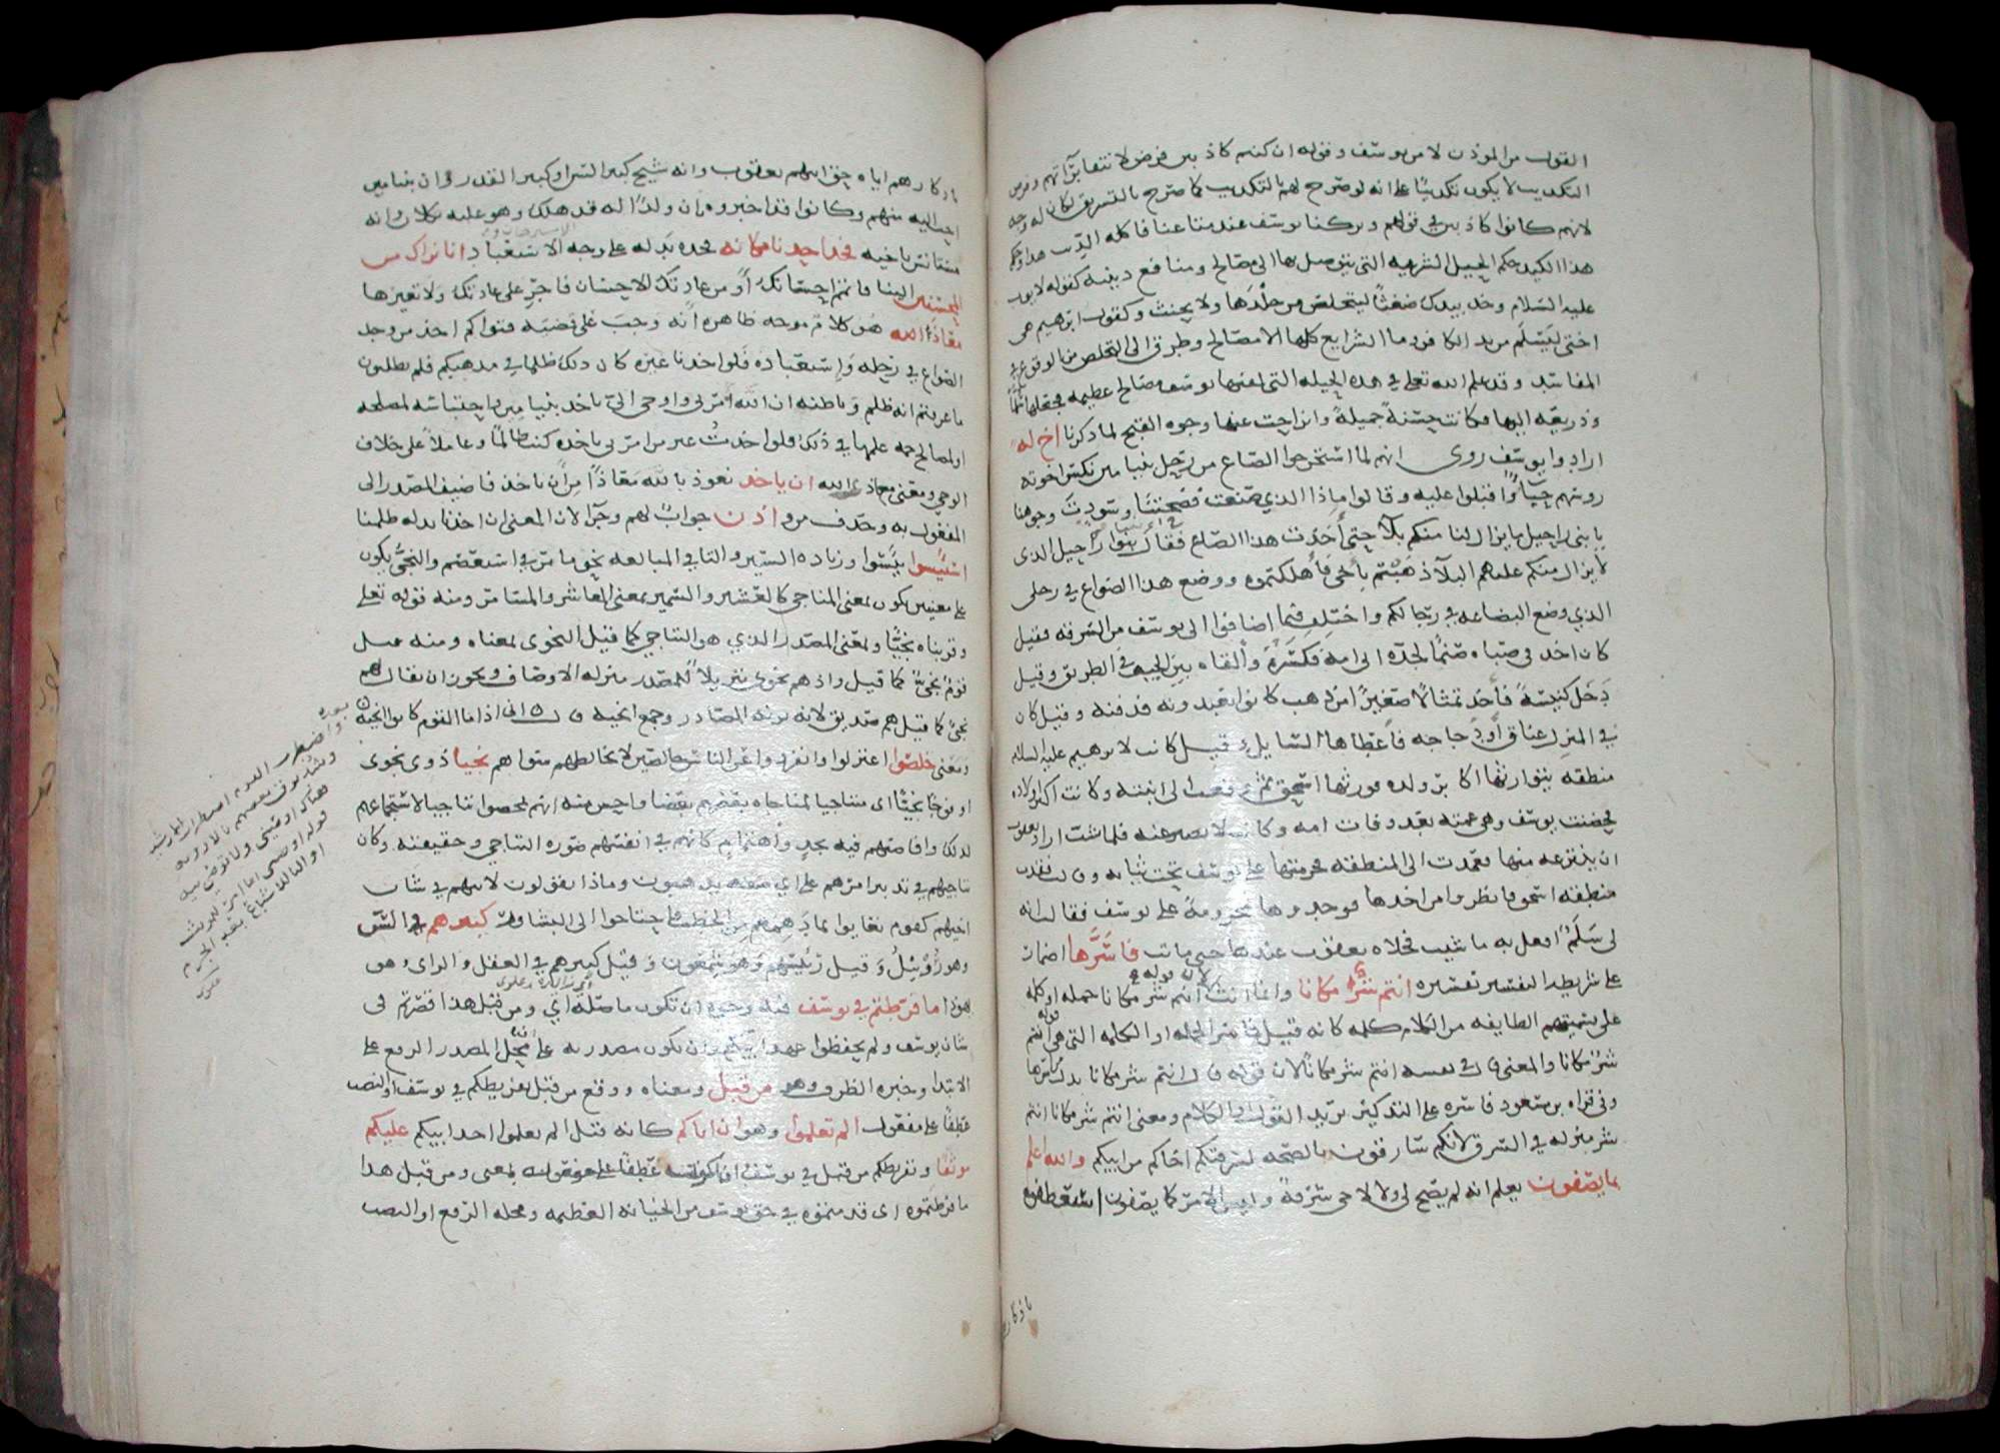 القول من الموذن لا من يوسف وقوله ان كنتم كاذبين فرض لانتفا براتهم وفرض
التكذيب لا يكون تكذيبًا على انه لو صرح لهم بالتكذيب كما صرح بالتسريق لكان له وجه
لانهم كانوا كاذبين في قولهم وتركنا يوسف عند متاعنا فاكله الذيب هذا وحكم
هذا الكيد حكم الحيل الشرعيه التي يتوصل بها الى مصالح ومنافع دينيه كقوله لايوب
عليه السلام وخذ بيدك ضغثًا ليتخلص من جلدها ولا يحنث وكقول ابرهيم هي
اختي ليسلم من يد الكافر وما الشرايع كلها الا مصالح وطرق الى التخلص من الوقوع في
المفاسد وقد علم الله تعلى في هذه الحيله التي لقنها يوسف مصالح عظيمه فجعلها سلما
وذريعه اليها فكانت حسنةً جميلةً وانزاحت عنها وجوه القبح لما ذكرنا اخ له
ارادوا يوسف روى انهم لما استخرجوا الصاع من رحل بنيامين نكس اخوته
روسهم حياءً واقبلوا عليه وقالوا ماذا الذي صنعت فضحتنا وسودت وجوهنا
يا بني راحيل ما يزال لنا منكم بلاء حتى اخذت هذا الصاع فقال بنوا راحيل الذي
لا يزال منكم عليهم البلاء ذهبتم باخي فاهلكتموه ووضع هذا الصواع في رحلي
الذي وضع البضاعه في رحالكم واختلف فيما اضافوا الى يوسف من السرقه فقيل
كان اخذ في صباه صنمًا لجده ابي امه فكسره والقاه بين الجيف في الطريق وقيل
دخل كنيسةً فاخذ تمثالاً صغيرًا من ذهب كانوا يعبدونه فدفنه وقيل كان
في المنزل عناق او دجاجه فاعطاها السايل وقيل كانت لابرهيم عليه السلام
منطقه يتوارثها اكابر ولده فورثها اسحق ثم وقعت الى ابنته وكانت اكبر اولاده
فحضنت يوسف وهي عمته بعد وفات امه وكانت لا تصبر عنه فلما شب اراد يعقوب
ان ينتزعه منها فعمدت الى المنطقه فحزمتها على يوسف تحت ثيابه وقالت فقدت
منطقه اسحق فانظروا من اخذها فوجدوها محزومة على يوسف فقالت انه
لي سلم افعل به ما شيت فخلاه يعقوب عندها حتى ماتت فاسرها اضمار
على شريطه التفسير تفسيره انتم شر مكانا وانما انث لان قوله انتم شر مكانا جمله او كلمه
على تسميتهم الطايفه من الكلام كلمه كانه قيل فاسر الجمله او الكلمه التي هي قوله انتم
شر مكانا والمعنى قال في نفسه انتم شر مكانا لان قوله قال انتم شر مكانا بدل من اسرها
وفي قراه بن مسعود فاسره على التذكير يريد القول او الكلام ومعنى انتم شر مكانا انتم
شر منزله في السرق لانكم سارقون بالصحه لسرقتكم اخاكم من ابيكم والله اعلم
بما يصفون يعلم انه لم يصح لي ولا لاخي سرقة وليس الامر كما يصفون استعطفوه
باذكار
باذكارهم اياه حق ابيهم يعقوب وانه شيخ كبير السن او كبير القدر وان بنيامين
احب اليه منهم وكانوا قد اخبروه بان ولدًا له قد هلك وهو عليه ثكلان وانه
مستانس باخيه فخذ احدنا مكانه فخذه بدله على وجه الاستعباد انا نراك من
المحسنين الينا فاتمم احسانك او من عادتك الاحسان فاجر على عادتك ولا تغيرها
معاذ الله هو كلام موجه ظاهره انه وجب على قضيه فتواكم اخذ من وجد
الصواع في رحله واستعباده فلو اخذنا غيره كان ذلك ظلما في مذهبكم فلم تطلبون
ما عرفتم انه ظلم وباطنه ان الله امرني واوحى الي باخذ بنيامين واحتباسه لمصلحه
او لمصالح جمه علمها في ذلك فلو اخذت غير من امرني باخذه كنت ظالمًا وعاملاً على خلاف
الوحي ومعنى معاذ الله ان ناخذ نعوذ بالله معاذًا من ان ناخذ فاضيف المصدر الى
المفعول به وحذف من و اذن جواب لهم وجزا لان المعنى ان اخذنا بدله ظلمنا
استيسوا يئسوا وزياده السين والتا في المبالغه نحو ما مر في استعصم والنجي يكون
على معنيين يكون بمعنى المناجي كالعشير والسمير بمعنى المعاشر والمسامر ومنه قوله تعلى
وقربناه نجيًا وبمعنى المصدر الذي هو التناجي كما قيل النجوى بمعناه ومنه قيل
قوم نجي كما قيل واذ هم نجوى تنزيلاً للمصدر منزله الاوصاف ويجوز ان يقال هم
نجي كما قيل هم صديق لانه بزنه المصادر وجمع انجيه قال اني اذا ما القوم كانوا انجيه
ومعنى خلصوا اعتزلوا وانفردوا عن الناس خالصين لا يخالطهم سواهم نجيا ذوي نجوى
او فوجًا نجيًا اي مناجيا لمناجاه بعضهم بعضا واحسن منه انهم تمحضوا تناجيا لاستجماعهم
لذلك وافاضتهم فيه بجد واهتمام كانهم في انفسهم صوره التناجي وحقيقته وكان
تناجيهم في تدبير امرهم على اي صفه يذهبون وماذا يقولون لابيهم في شان
اخيهم كقوم تعايوا بما دهمهم من الخطب فاحتاجوا الى التشاور كبيرهم في السن
وهو روبيل وقيل رئيسهم وهو شمعون وقيل كبيرهم في العقل والراي وهو
يهوذا ما فرطتم في يوسف فيه وجوه ان تكون ما صلة اي ومن قبل هذا قصرتم في
شان يوسف ولم تحفظوا عهد ابيكم وان تكون مصدريه على ان محل المصدر الرفع على
الابتدا وخبره الظرف وهو من قبل ومعناه ووقع من قبل تفريطكم في يوسف او النصب
عطفًا على مفعول الم تعلموا وهو ان اباكم كانه قيل الم تعلموا اخذ ابيكم عليكم
موثقا وتفريطكم من قبل في يوسف
ما فرطتموه اي قدمتموه في حق يوسف من الخيانه العظيمه ومحله الرفع او النصب